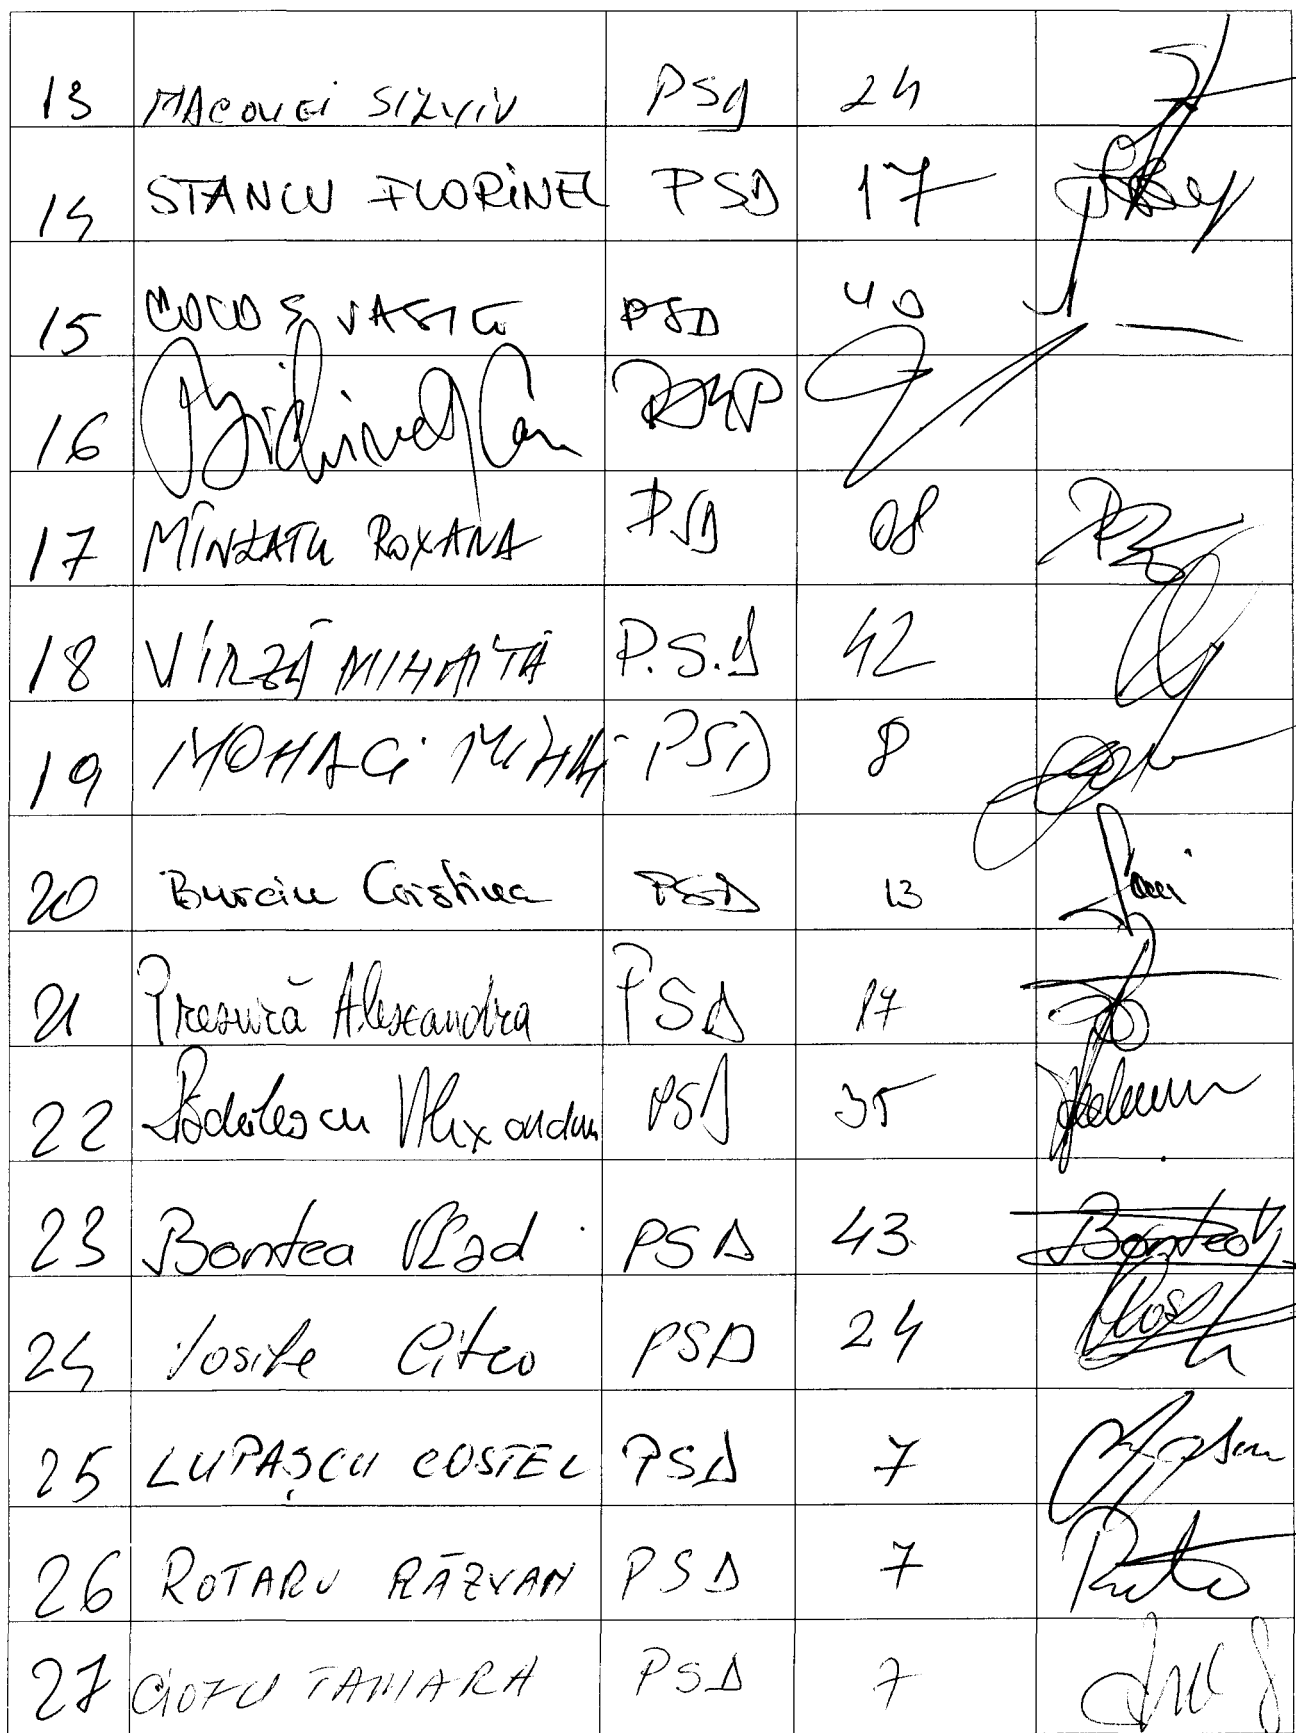 13 MACOVEI SILVIU PSD 24
14 STANCU FLORINEL PSD 17
15 COCOȘ VASILE PSD 40
16
17 MÎNZATU ROXANA PSD 08
18 VÎRZĂ MIHĂIȚĂ P.S.D 42
19 MOHACI MIHAI PSD 8
20 Burciu Cristina PSD 13
21 Presură Alexandra PSD 17
22 Bădălescu Alexandru PSD 35
23 Bontea Vlad PSD 43 Bontea V
24 PSD 24
25 LUPAȘCU COSTEL PSD 7
26 ROTARU RĂZVAN PSD 7
27 CIOFU TAMARA PSD 7